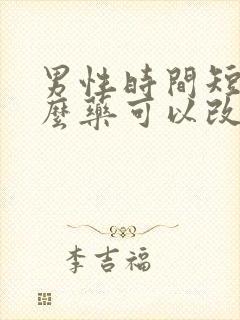 男性時間短
麼藥可以改
李吉福